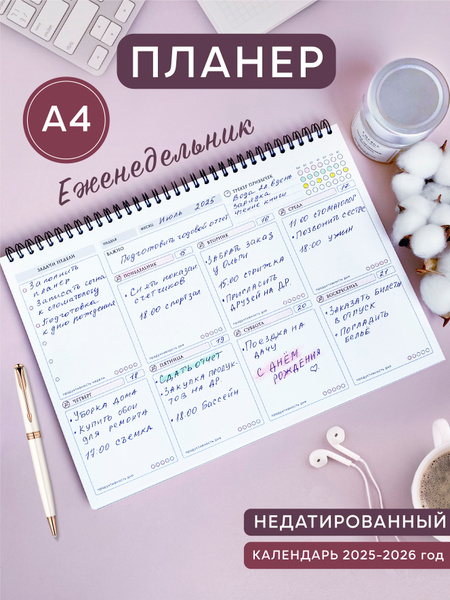 ПЛАНЕР
А4
Еженедельник
ТРЕКЕР ПРИВЫЧЕК
Вода 2л в день
зарядка
Чтение книги
МЕСЯЦ Июль 2025
ЗАДАЧИ НЕДЕЛИ
ВАЖНО
Подготовить годовой отчет
Заполнить
планер
Записать сына
к стоматологу
Подготовка
к дню рождения
ПОНЕДЕЛЬНИК
Снять показан.
счетчиков
18:00 спортзал
ВТОРНИК
Забрать заказ
15:00 стрижка
Пригласить
друзей на ДР.
СРЕДА
11:00 стоматолог
Позвонить сестре
18:00 ужин
ЧЕТВЕРГ 18
Уборка дома
Купить обои
для ремонта
17:00 съемка
ПЯТНИЦА 19
Сдать отчет
Закупка продук-
тов на ДР
18:00 бассейн
СУББОТА 20
Поездка на
дачу
С ДНЁМ
РОЖДЕНИЯ
ВОСКРЕСЕНЬЕ 21
Заказать билеты
в отпуск
Погладить
бельё
НЕДАТИРОВАННЫЙ
КАЛЕНДАРЬ 2025-2026 год